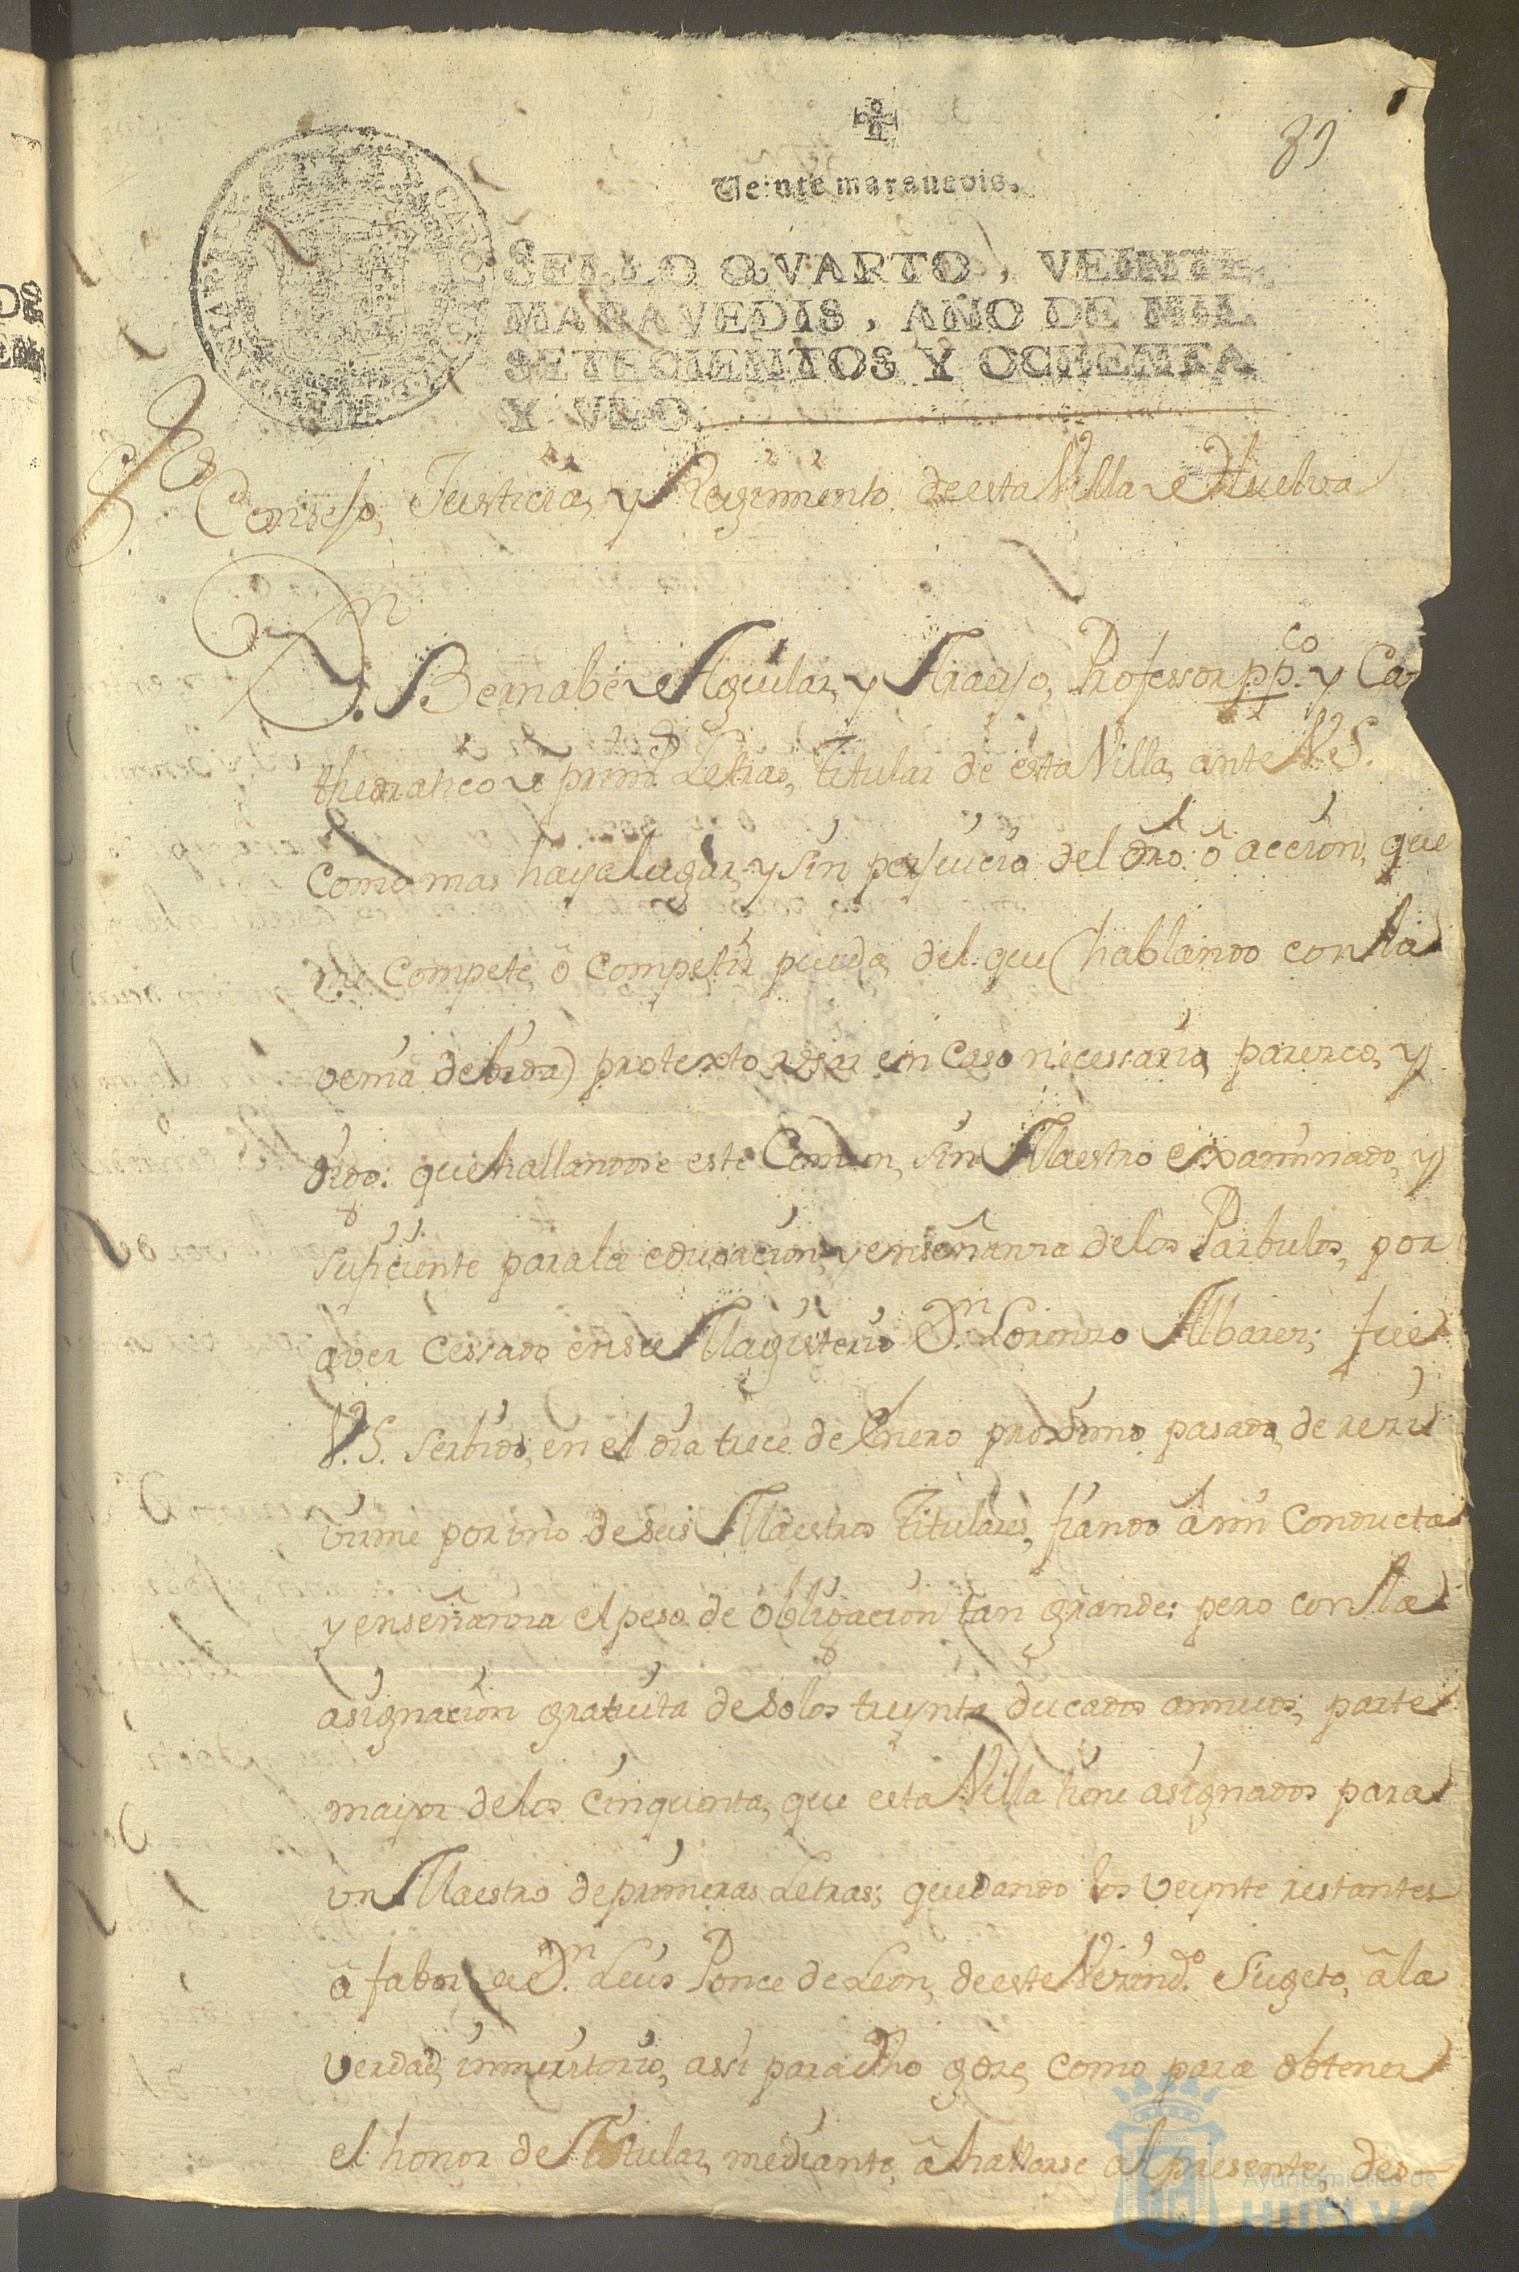 39
Veinte marauedis.
SELLO QVARTO, VEINTE
MARAVEDIS, AÑO DE MIL
SETECIENTOS Y OCHENTA
Y VNO.
Consejo, Justicia, y Regimiento de esta Villa de Huelva
Dn. Bernabé de Aguilar, y Araujo, Professor ppco. y Ca-
thedratico de primras. Letras, Titular de esta Villa, ante V.S.
como mas haya lugar, y sin perjuicio del dro. ô accion, que
me compete, ô competir pueda, del que (hablando con la
venia debida) protexto usar en caso necessario, parezco, y
digo: que hallandose este Comun, sin Maestro examinado, y
suficiente para la educacion, y enseñanza de los Parbulos, por
aver cessado en su Magisterio Dn. Lorenzo Albarez; fue
V.S. serbido, en el dia trece de Enero proximo pasado, de reci-
virme por uno de sus Maestros Titulares, fiando â mi conducta
y enseñanza el peso de obligacion tan grande: pero con la
asignacion gratuita de solos treynta ducados annuos, parte
mayor de los cinquenta, que esta Villa tiene asignados para
un Maestro de primeras Letras; quedando los veynte restantes
â fabor de Dn. Luis Ponce de Leon, de este Vezindo. Sugeto, â la
verdad, inmeritorio, assi para dho goze, como para obtener
el honor de Titular, mediante, â hallarse al presente, des-
Ayuntamiento de
HUELVA